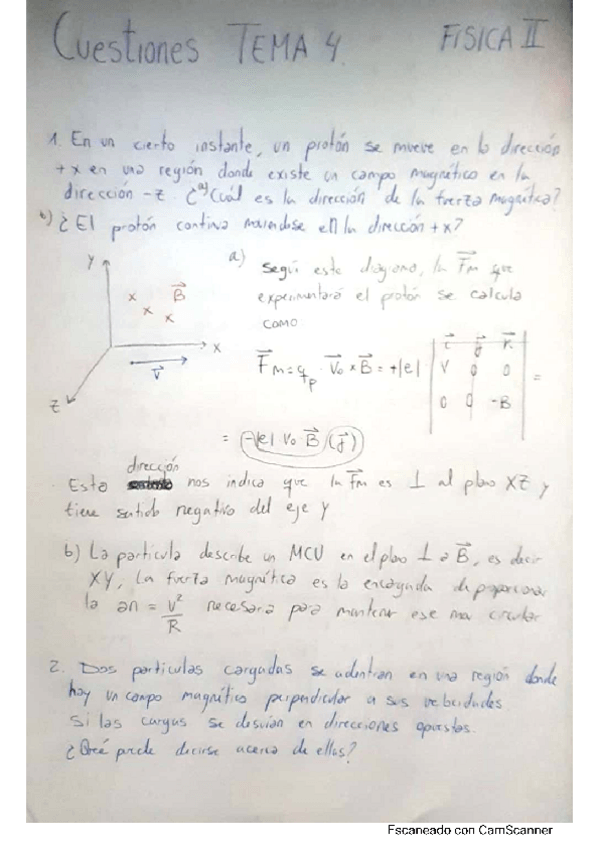 Cuestiones TEMA 4. FISICA II
1. En un cierto instante, un protón se mueve en la dirección
+x en una región donde existe un campo magnético en la
dirección -z. a) ¿Cuál es la dirección de la fuerza magnética?
b) ¿El protón continua moviendose en la dirección +x?
a) Según este diagrama, la Fm que
experimentará el protón se calcula
como
y
x x x B
x
v
z
Fm = qp · Vo x B = +|e| | i j k | =
| V 0 0 |
| 0 0 -B |
= -|e| Vo B (j)
dirección
Esta nos indica que la Fm es ⊥ al plano XZ y
tiene sentido negativo del eje y
b) La particula describe un MCU en el plano ⊥ a B, es decir
XY, La fuerza magnética es la encargada de proporcionar
la an = v²/R necesaria para mantener ese mov circular
2. Dos particulas cargadas se adentran en una región donde
hay un campo magnético perpendicular a sus velocidades
Si las cargas se desvían en direcciones opuestas.
¿Qué puede decirse acerca de ellas?
Escaneado con CamScanner